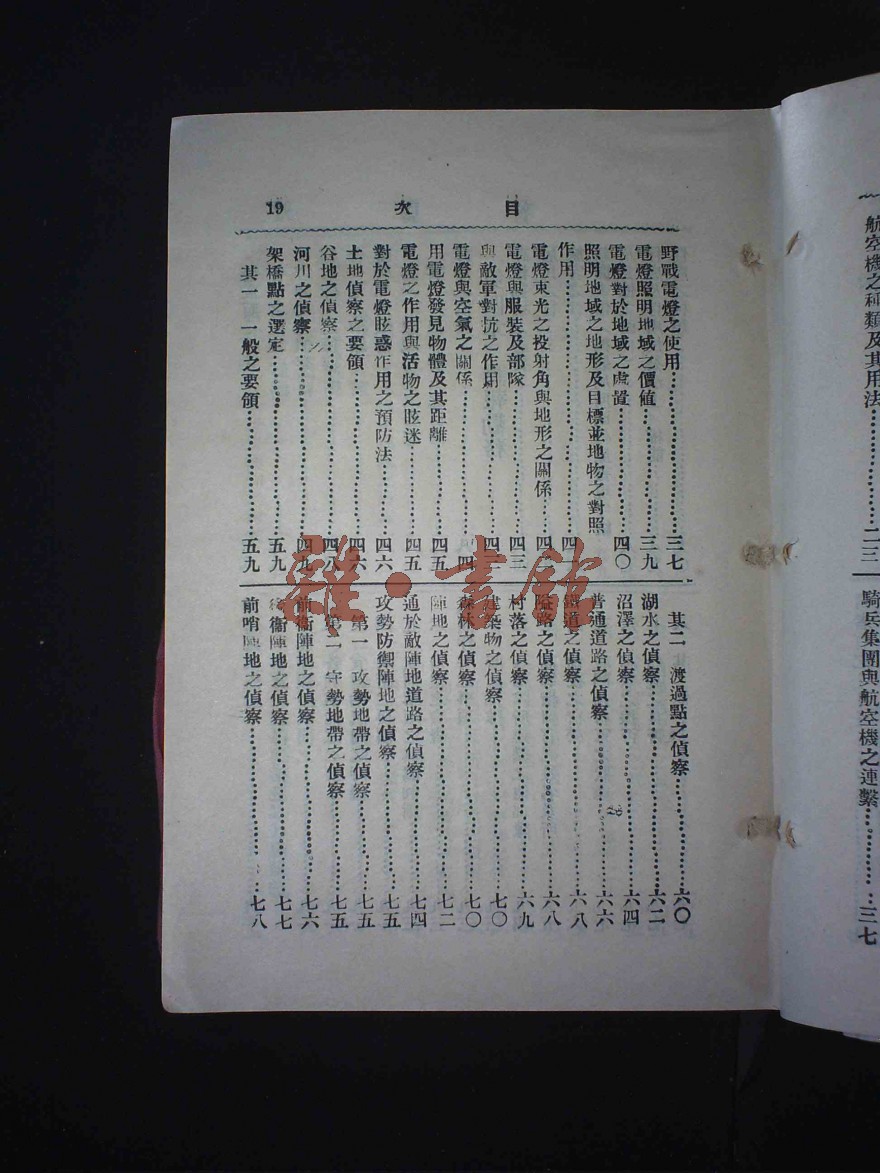 目次 19
野戰電燈之使用…………三七
電燈照明地域之價値…………三九
電燈對於地域之處置…………四〇
照明地域之地形及目標並地物之對照
作用…………四
電燈束光之投射角與地形之關係…………四
電燈與服裝及部隊…………四三
與敵軍對抗之作用…………四
電燈與空氣之關係…………四
用電燈發見物體及其距離…………四五
電燈之作用與活物之眩迷…………四五
對於電燈眩惑作用之預防法…………四六
土地偵察之要領…………四六
谷地之偵察…………四八
河川之偵察…………四九
架橋點之選定…………五九
其一 一般之要領…………五九
其二 渡過點之偵察…………六〇
湖水之偵察…………六二
沼澤之偵察…………六四
普通道路之偵察…………六六
鐵道之偵察…………六八
隘路之偵察…………六八
村落之偵察…………六九
建築物之偵察…………七〇
森林之偵察…………七〇
陣地之偵察…………七二
通於敵陣地道路之偵察…………七四
攻勢防禦陣地之偵察…………七五
第一 攻勢地帶之偵察…………七五
第二 守勢地帶之偵察…………七五
前衞陣地之偵察…………七六
後衞陣地之偵察…………七七
前哨陣地之偵察…………七八
航空機之種類及其用法…………二三
騎兵集團與航空機之連繫…………三七
雜·書館